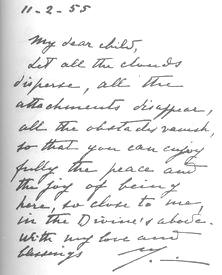 11-2-55
My dear child,
Let all the clouds
disperse, all the
attachments disappear,
all the obstacles vanish
so that you can enjoy
fully the peace and
the joy of being
here, so close to me,
in the Divine's abode.
With my love and
blessings